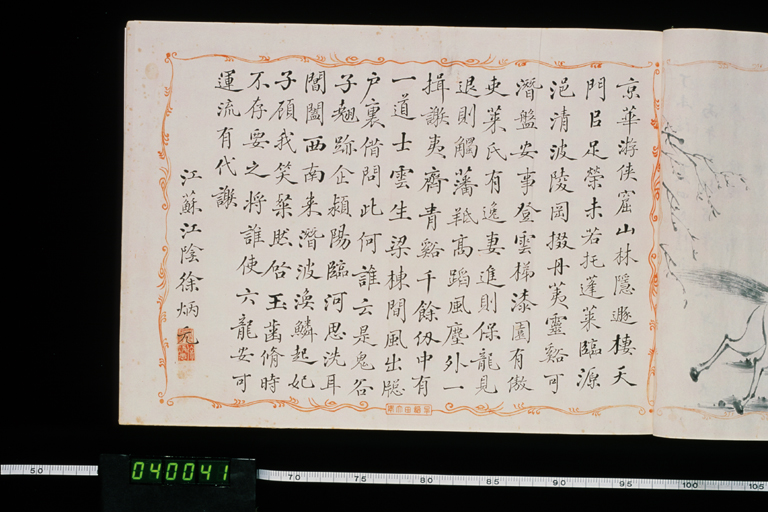 京華游俠窟山林隱遯棲
門足榮未若托蓬萊臨源
浥清波陵岡掇丹荑靈谿可
潛盤安事登雲梯漆園有傲
吏萊氏有逸妻進則保龍見
退則觸藩羝高蹈風塵外一
揖謝夷齊青谿千餘仞中有
一道士雲生梁棟間風出牕
户裏借問此何誰云是鬼谷
子翹跡企潁陽臨河思洗耳
閶闔西南来潛波渙鱗起妃
子顧我笑粲然啓玉齒脩時
不存要之將誰使六龍安可
運流有代謝
江蘇江陰徐炳元
040041
50 70 75 80 85 90 95 100 105